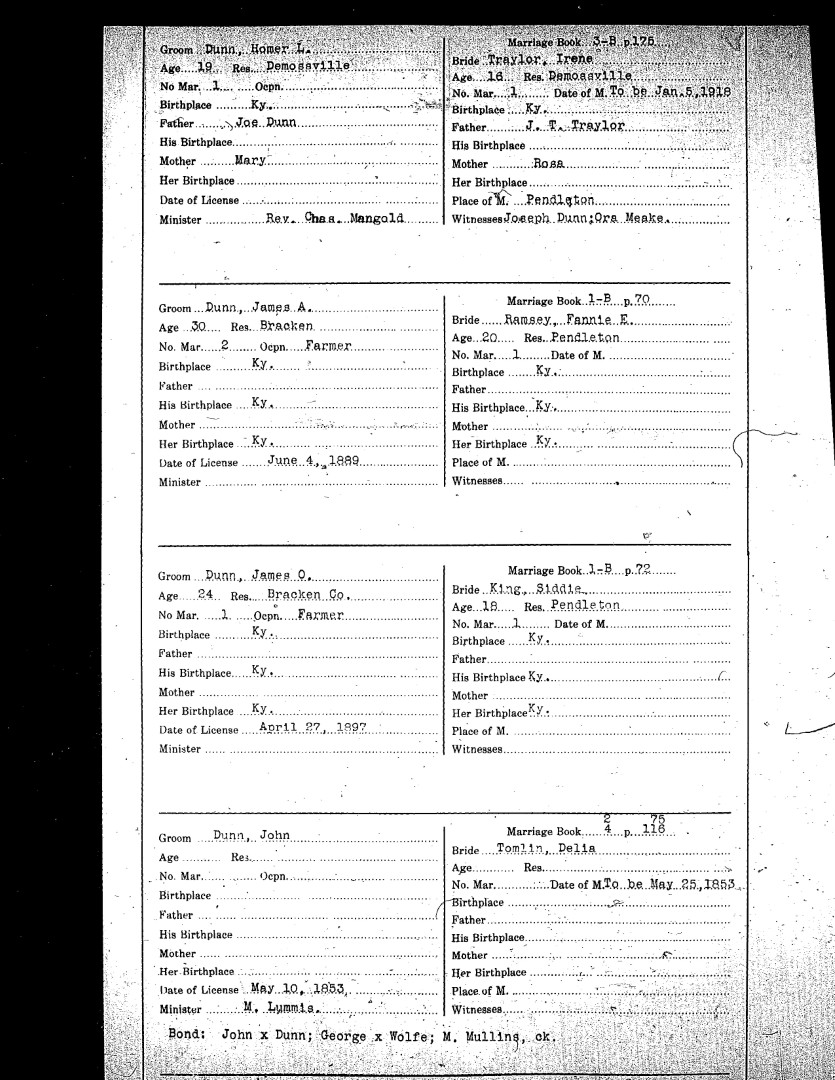 Groom Dunn, Homer L.
Age 19 Res. Demossville
No Mar. 1 Ocpn.
Birthplace Ky.
Father Joe Dunn
His Birthplace
Mother Mary
Her Birthplace
Date of License
Minister Rev. Chas. Mangold
Marriage Book 3-B p. 175
Bride Traylor, Irene
Age 16 Res. Demossville
No. Mar. 1 Date of M. To be Jan. 5, 1918
Birthplace Ky.
Father J. T. Traylor
His Birthplace
Mother Rosa
Her Birthplace
Place of M. Pendleton
Witnesses Joseph Dunn; Ora Meake.
Groom Dunn, James A.
Age 30 Res. Bracken
No. Mar. 2 Ocpn. Farmer
Birthplace Ky.
Father
His Birthplace Ky.
Mother
Her Birthplace Ky.
Date of License June 4, 1889
Minister
Marriage Book 1-B p. 70
Bride Ramsey, Fannie E.
Age 20 Res. Pendleton
No. Mar. 1 Date of M.
Birthplace Ky.
Father
His Birthplace Ky.
Mother
Her Birthplace Ky.
Place of M.
Witnesses
Groom Dunn, James O.
Age 24 Res. Bracken Co.
No Mar. 1 Ocpn. Farmer
Birthplace Ky.
Father
His Birthplace Ky.
Mother
Her Birthplace Ky.
Date of License April 27, 1897
Minister
Marriage Book 1-B p. 72
Bride King, Siddie
Age 18 Res. Pendleton
No. Mar. 1 Date of M.
Birthplace Ky.
Father
His Birthplace Ky.
Mother
Her Birthplace Ky.
Place of M.
Witnesses
Groom Dunn, John
Age Res.
No. Mar. Ocpn.
Birthplace
Father
His Birthplace
Mother
Her Birthplace
Date of License May 10, 1853
Minister M. Lummis.
2 75
Marriage Book 4 p. 116
Bride Tomlin, Delia
Age Res.
No. Mar. Date of M. To be May 25, 1853
Birthplace
Father
His Birthplace
Mother
Her Birthplace
Place of M.
Witnesses
Bond: John x Dunn; George x Wolfe; M. Mullins, ck.